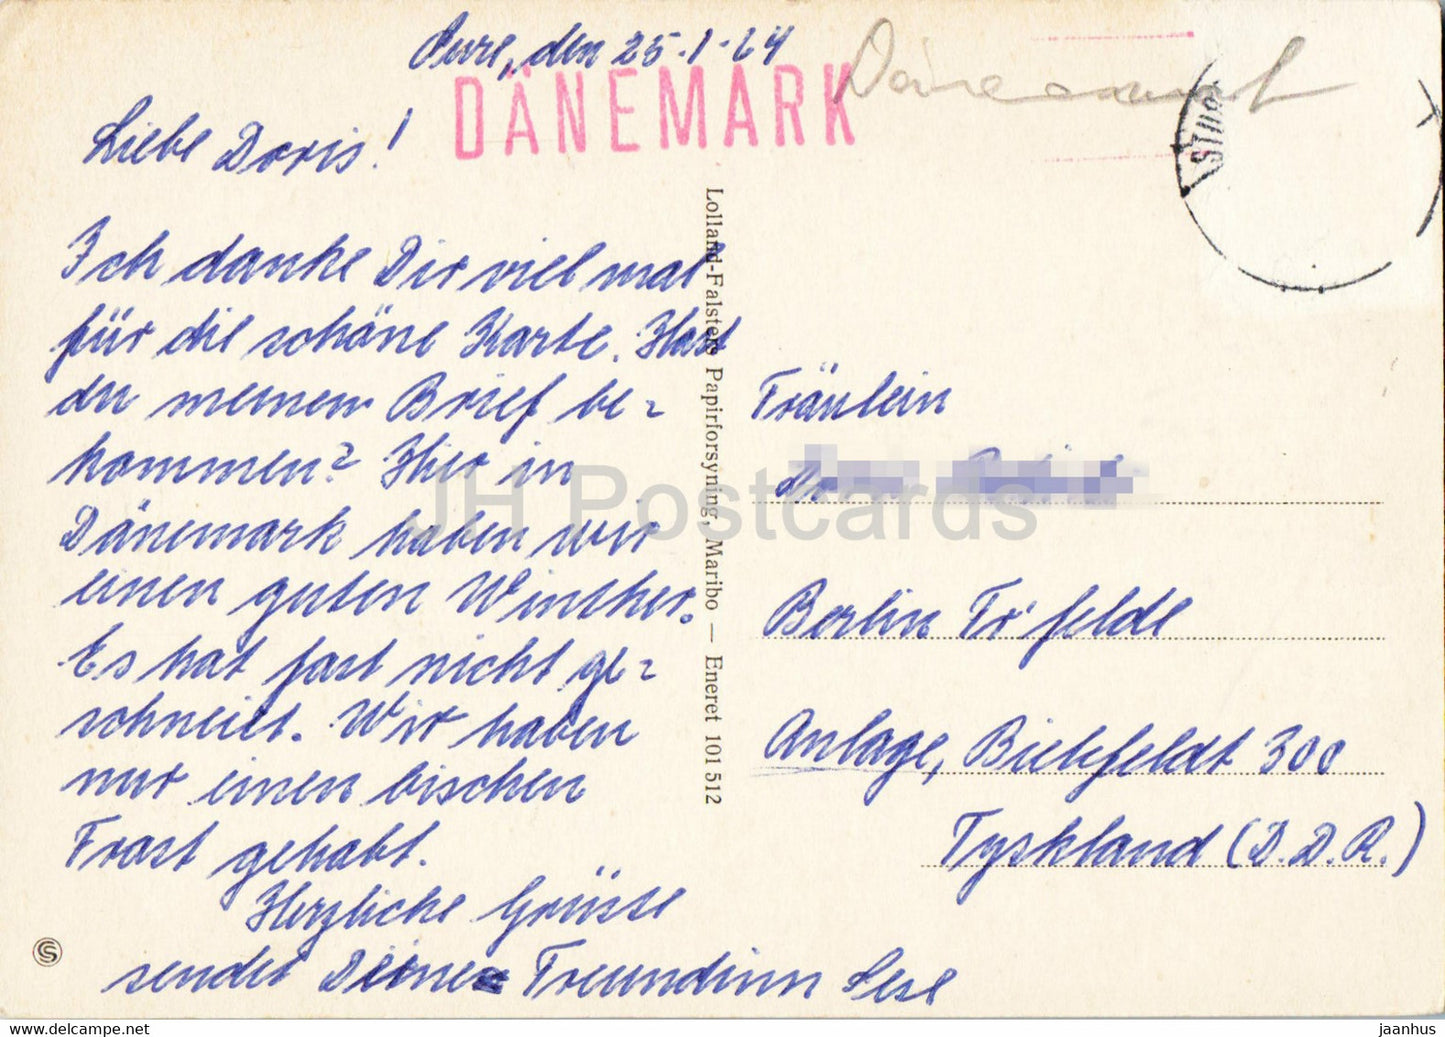 den 25-1-64
DÄNEMARK
Liebe Doris!
Ich danke Dir viel mal
für die schöne Karte. Hast
du meinen Brief be-
kommen? Hier in
Dänemark haben wir
einen guten Winther.
Es hat fast nicht ge-
schneiet. Wir haben
nur einen bischen
Frost gehabt.
Herzliche Grüsse
sendet Deine Freundinn Lese
Lolland-Falsters Papirforsyning, Maribo — Eneret 101 512
Fräulein
Berlin Fr'felde
Anlage, Bielefeldt 300
Tyskland (D.D.R.)
JH Postcards
HipPostcard.com
jaanhus